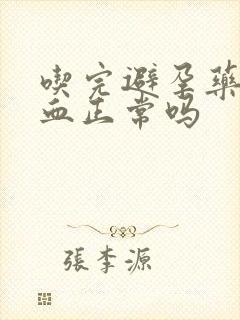 喫完避孕藥
血正常嗎
張李源